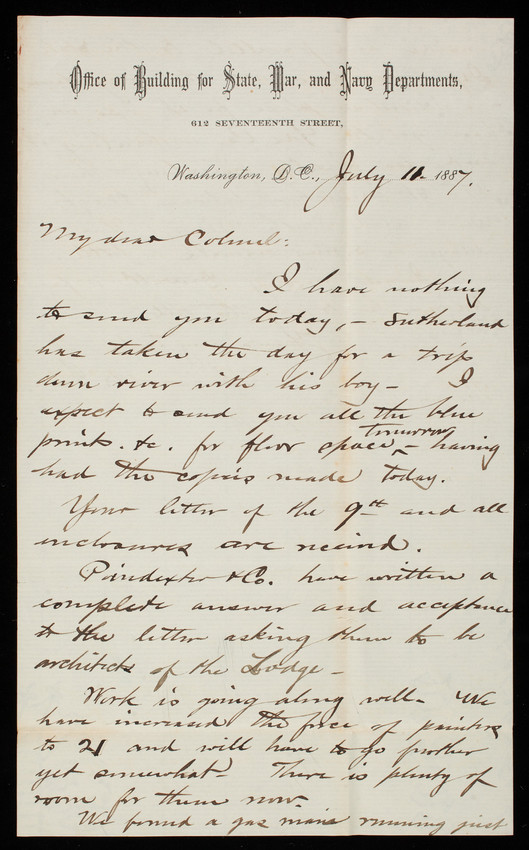 Office of Building for State, War, and Navy Departments,
612 SEVENTEENTH STREET,
Washington, D.C., July 11. 1887.
My dear Colonel:
I have nothing
to send you today, – Sutherland
has taken the day for a trip
down river with his boy – I
expect to send you all the blue
prints. &c. for floor space tomorrow, – having
had the copies made today.
Your letter of the 9th and all
enclosures are received.
Poindexter & Co. have written a
complete answer and acceptance
to the letter asking them to be
architects of the Lodge –
Work is going along well – We
have increased the force of painters
to 21 and will have to go further
yet somewhat. There is plenty of
room for them now.
We found a gas main running just